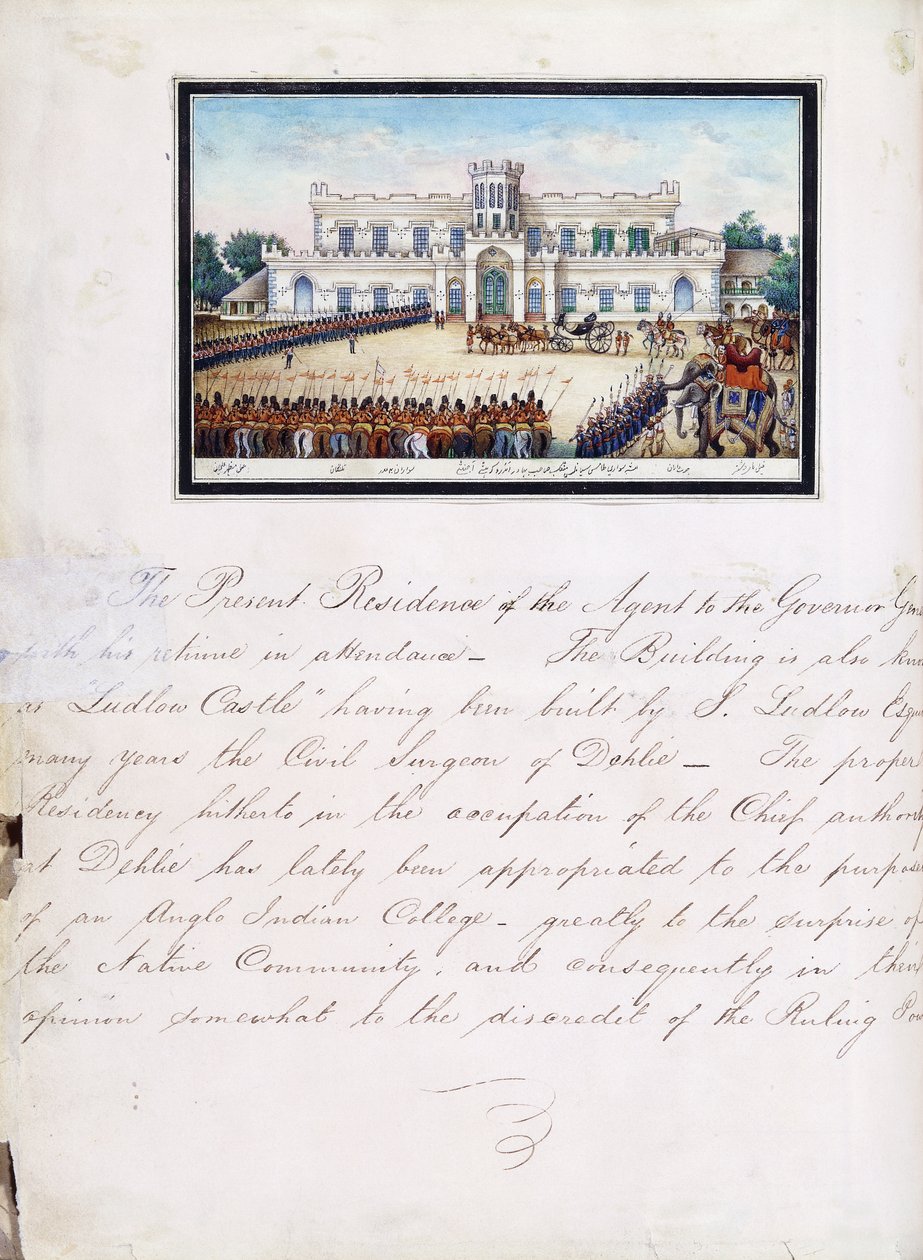 سواران بهادر
تلنگان
The Present Residence of the Agent to the Governor Gene
with his retinue in attendance – The Building is also kno
as "Ludlow Castle" having been built by S. Ludlow Esqu
many years the Civil Surgeon of Dehlie – The proper
Residency hitherto in the occupation of the Chief authority
at Dehlie has lately been appropriated to the purposes
of an Anglo Indian College – greatly to the surprise of
the Native Community, and consequently in their
opinion somewhat to the discredit of the Ruling Pow